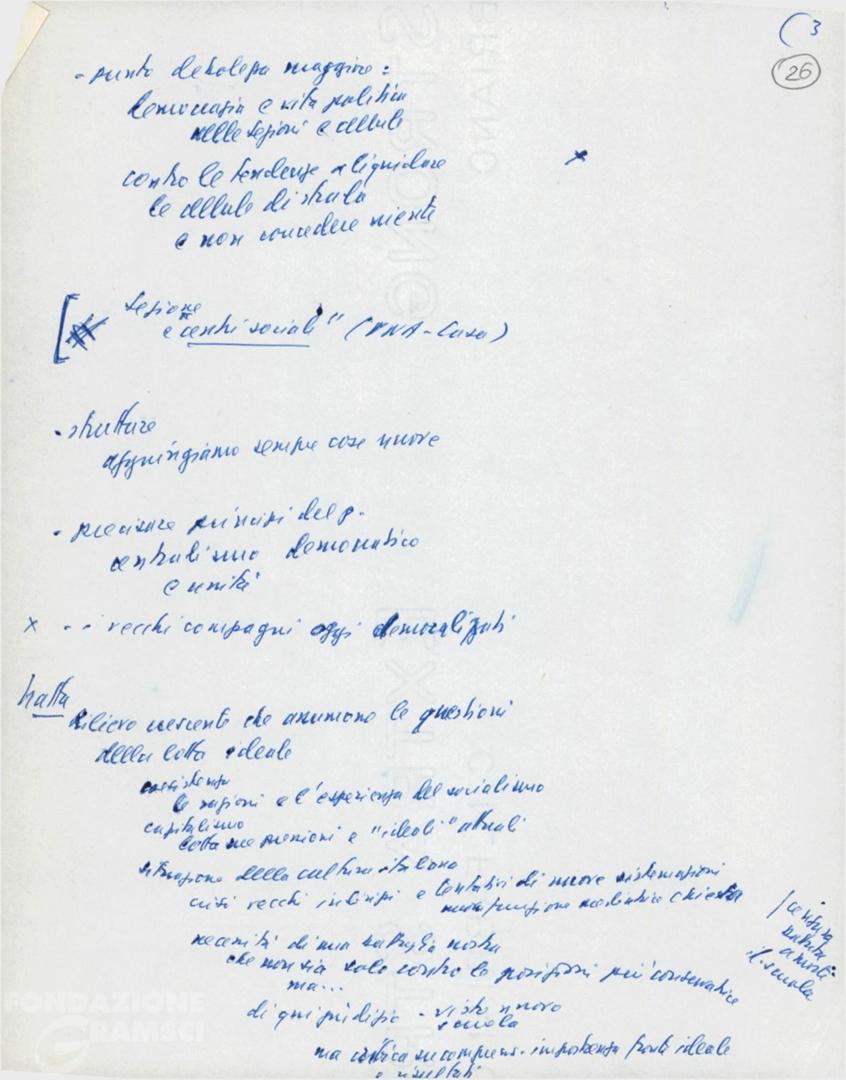 (3
26
- punto debolezza maggiore:
democrazia e vita politica
nelle sezioni e cellule
contro le tendenze a liquidare
le cellule di strada
e non concedere niente
x
Sezione
e "centri sociali" (INA-Casa)
- strutture
aggiungiamo sempre cose nuove
- precisare principi del p.
centralismo democratico
e unità
x - i vecchi compagni oggi demoralizzati
Natta
rilievo crescente che assumono le questioni
della lotta ideale
coesistenza
le ragioni e l'esperienza del socialismo
capitalismo
lotta sue posizioni e "ideali" attuali
situazione della cultura italiana
crisi vecchi indirizzi e tentativi di nuove sistemazioni
nuova funzione mediatrice chiesta
necessità di una battaglia nostra
che non sia solo contro le posizioni più conservatrici
ma...
di qui giudizio - visto nuovo
scuola
/ censura
il. scuola
ma critica incompren. importanza fronte ideale
e risultati
FONDAZIONE
GRAMSCI